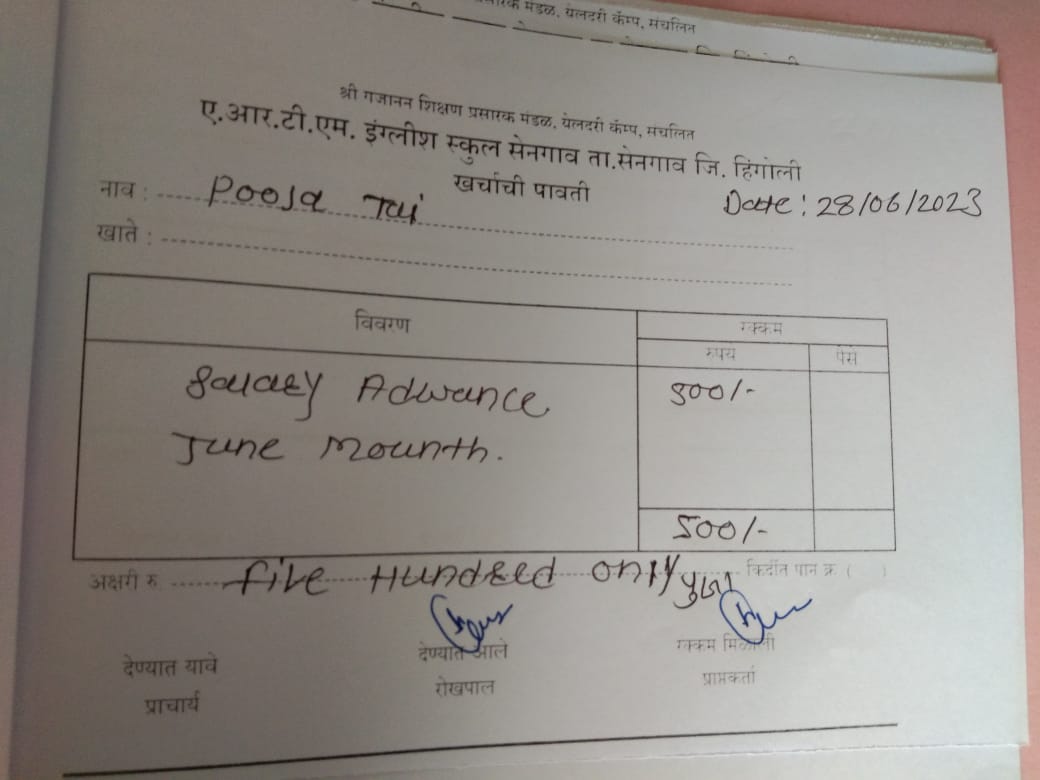 प्रसारक मंडळ, येलदरी कॅम्प, संचलित
श्री गजानन शिक्षण प्रसारक मंडळ, येलदरी कॅम्प, संचलित
ए.आर.टी.एम. इंग्लीश स्कुल सेनगाव ता.सेनगाव जि. हिंगोली
खर्चाची पावती
नाव : Pooja Tai
Date : 28/06/2023
खाते :
विवरण रक्कम
रुपये पैसे
Salary Advance 500/-
June Mounth.
500/-
अक्षरी रु. five Hundred only किर्दीत पान क्र. ( )
पुजा
देण्यात यावे देण्यात आले रक्कम मिळाली
प्राचार्य रोखपाल प्राप्तकर्ता